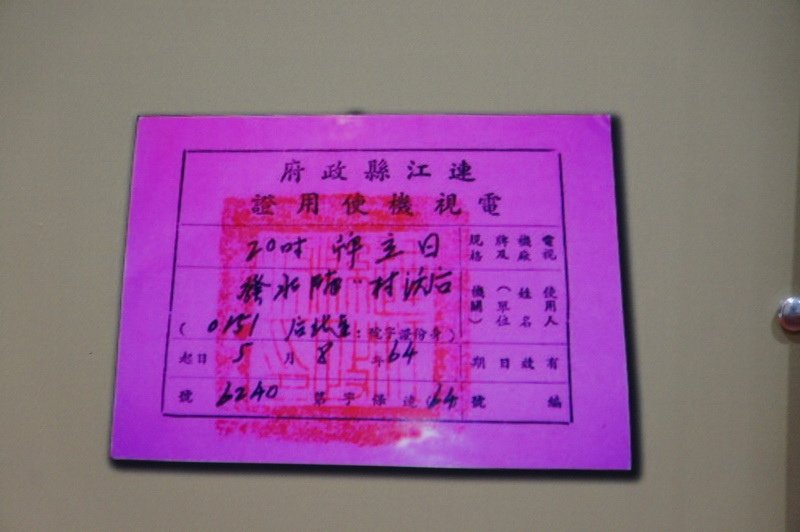 連江縣政府
電視機使用證
電視機廠牌及規格 日立牌 20吋
使用人姓名(單位機關) 后沃村 水發
(身份證字號: 0151)
有效日期 64年8月5日起
編號 (64連條字第6240號